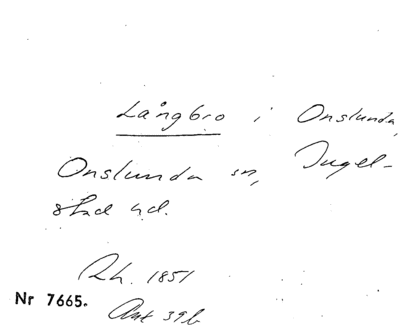 Långbro i Onslunda,
Onslunda sn, Ingel-
stad hd.
Rh. 1851
Nr 7665.
Ant 39b